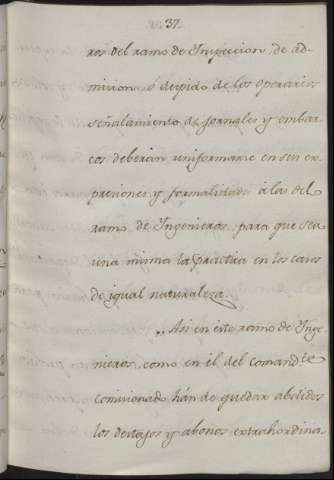 37.
ros del ramo de Inspeccion, de ad-
mision ó despido de los operarios
señalamiento de jornales y embar-
cos deberán uniformarse en sus ex-
presiones y formalidades á las del
ramo de Ingenieros, para que sea
una misma la practica en los casos
de igual naturaleza.
,, Asi en este ramo de Inge-
nieros, como en él del Comand.te
comisionado hán de quedar abolidos
los destajos y abonos extrahordina-